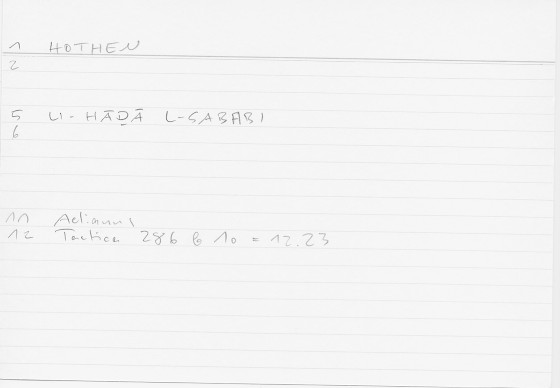 1 HOTHEN
2
5 LI-HĀḎĀ L-SABABI
6
11 Aelianus
12 Tactica 286 b 10 = 12.23